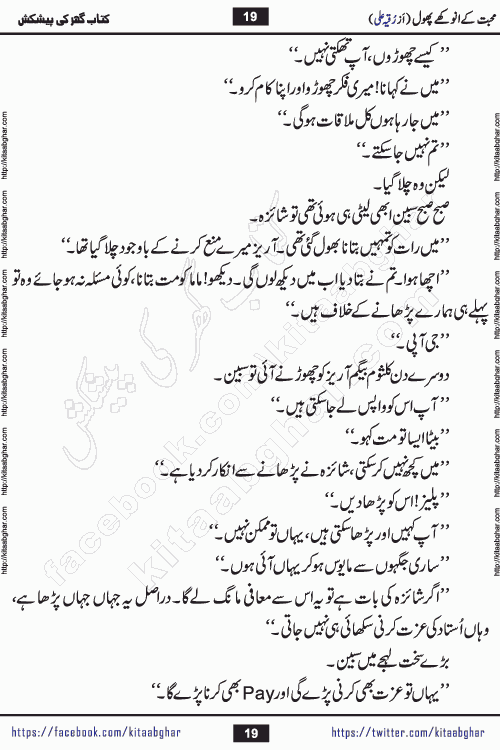 محبت کے انوکھے پھول (از رُقیہ علی) 19 کتاب گھر کی پیشکش
’’کیسے چھوڑوں، آپ تھکتی نہیں۔‘‘
’’میں نے کہا نا! میری فکر چھوڑو اور اپنا کام کرو۔‘‘
’’میں جا رہا ہوں کل ملاقات ہوگی۔‘‘
’’تم نہیں جا سکتے۔‘‘
لیکن وہ چلا گیا۔
صبح صبح سبین ابھی لیٹی ہی ہوئی تھی تو شانزہ۔
’’میں رات کو تمہیں بتانا بھول گئی تھی۔ آریز میرے منع کرنے کے باوجود چلا گیا تھا۔‘‘
’’اچھا ہوا۔ تم نے بتا دیا اب میں دیکھ لوں گی۔ دیکھو! ماما کو مت بتانا، کوئی مسئلہ نہ ہو جائے وہ تو
پہلے ہی ہمارے پڑھانے کے خلاف ہیں۔‘‘
’’جی آپی۔‘‘
دوسرے دن کلثوم بیگم آریز کو چھوڑنے آئی تو سبین۔
’’آپ اس کو واپس لے جا سکتی ہیں۔‘‘
’’بیٹا ایسا تو مت کہو۔‘‘
’’میں کچھ نہیں کر سکتی، شانزہ نے پڑھانے سے انکار کر دیا ہے۔‘‘
’’پلیز! اس کو پڑھا دیں۔‘‘
’’آپ کہیں اور پڑھا سکتی ہیں، یہاں تو ممکن نہیں۔‘‘
’’ساری جگہوں سے مایوس ہو کر یہاں آئی ہوں۔‘‘
’’اگر شانزہ کی بات ہے تو یہ اس سے معافی مانگ لے گا۔ دراصل یہ جہاں جہاں پڑھا ہے،
وہاں اُستاد کی عزت کرنی سکھائی ہی نہیں جاتی۔‘‘
بڑے سخت لہجے میں سبین۔
’’یہاں تو عزت بھی کرنی پڑے گی اور Pay بھی کرنا پڑے گا۔‘‘
http://kitaabghar.com
http://kitaabghar.com
http://kitaabghar.com
http://kitaabghar.com
http://kitaabghar.com
http://kitaabghar.com
http://kitaabghar.com
http://kitaabghar.com
http://kitaabghar.com
http://kitaabghar.com
http://kitaabghar.com
http://kitaabghar.com
کتاب گھر کی پیشکش
kitaabghar.com
facebook.com/kitaabghar
https://facebook.com/kitaabghar 19 https://twitter.com/kitaabghar